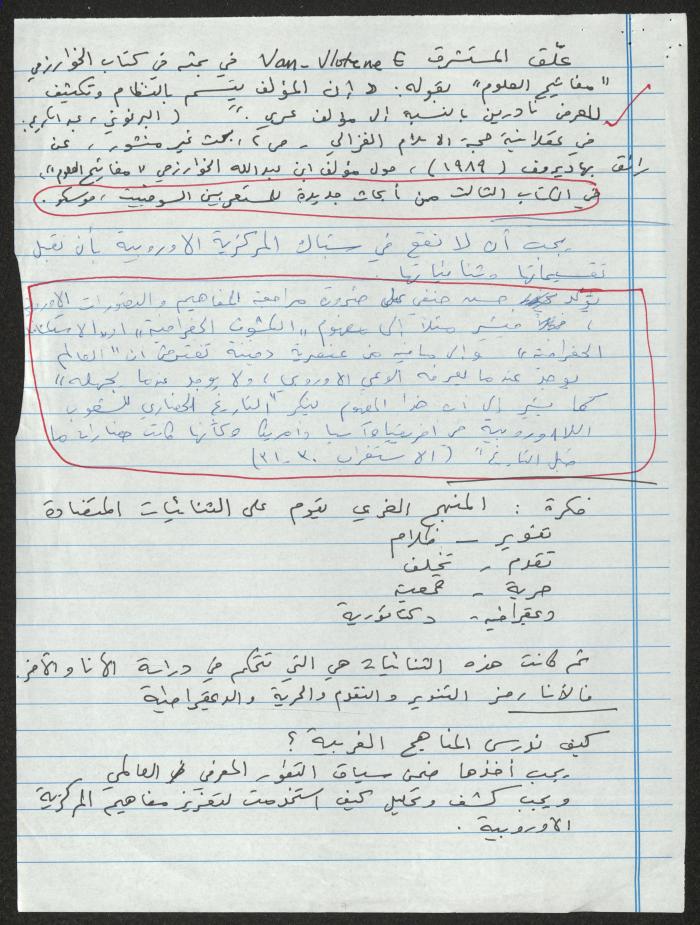 علّق المستشرق Van-Vlotene G في بحثه في كتاب الخوارزمي
"مفاتيح العلوم" بقوله: "ان المؤلف يتسم بالنظام وتكثيف
للعرض نادرين بالنسبة الى مؤلف عربي." (البرغوثي، عبد الكريم:
في عقلانية حجة الاسلام الغزالي، ص ٢، بحث غير منشور، عن
رائق بهاديروف (١٩٨٩)، حول مؤلف ابن عبدالله الخوارزمي "مفاتيح العلوم"،
في الكتاب الثالث من أبحاث جديدة للمستعربين السوفييت، موسكو.
يجب أن لا نقع في شباك المركزية الاوروبية بأن نقبل
تقسيماتها وثنائياتها.
يؤكد حسن حنفي على ضرورة مراجعة المفاهيم والتصورات الاوروبية
، فيشير مثلاً إلى مفهوم "الكشوف الجغرافية" او "الاستكشافات
الجغرافية" وإلى ما فيه من عنصرية دفينة تفترض ان "العالم
يوجد عندما يعرفه الوعي الاوروبي، ولا يوجد عندما يجهله"
كما يشير إلى ان هذا المفهوم ينكر "التاريخ الحضاري للشعوب
اللااوروبية في افريقيا وآسيا وامريكا وكأنها كانت حضارات ما
قبل التاريخ" (الاستغراب ٣٠-٣١)
فكرة: المنهج الغربي يقوم على الثنائيات المتضادة
تنوير - ظلام
تقدم - تخلف
حرية -
ديمقراطية - دكتاتورية
ثم كانت هذه الثنائيات هي التي تتحكم في دراسة الأنا والآخر.
فالأنا رمز التنوير والتقدم والحرية والديمقراطية
كيف ندرس المناهج الغربية؟
يجب أخذها ضمن سياق التطور المعرفي العالمي
ويجب كشف وتحليل كيف استخدمت لتعزيز مفاهيم المركزية
الاوروبية.